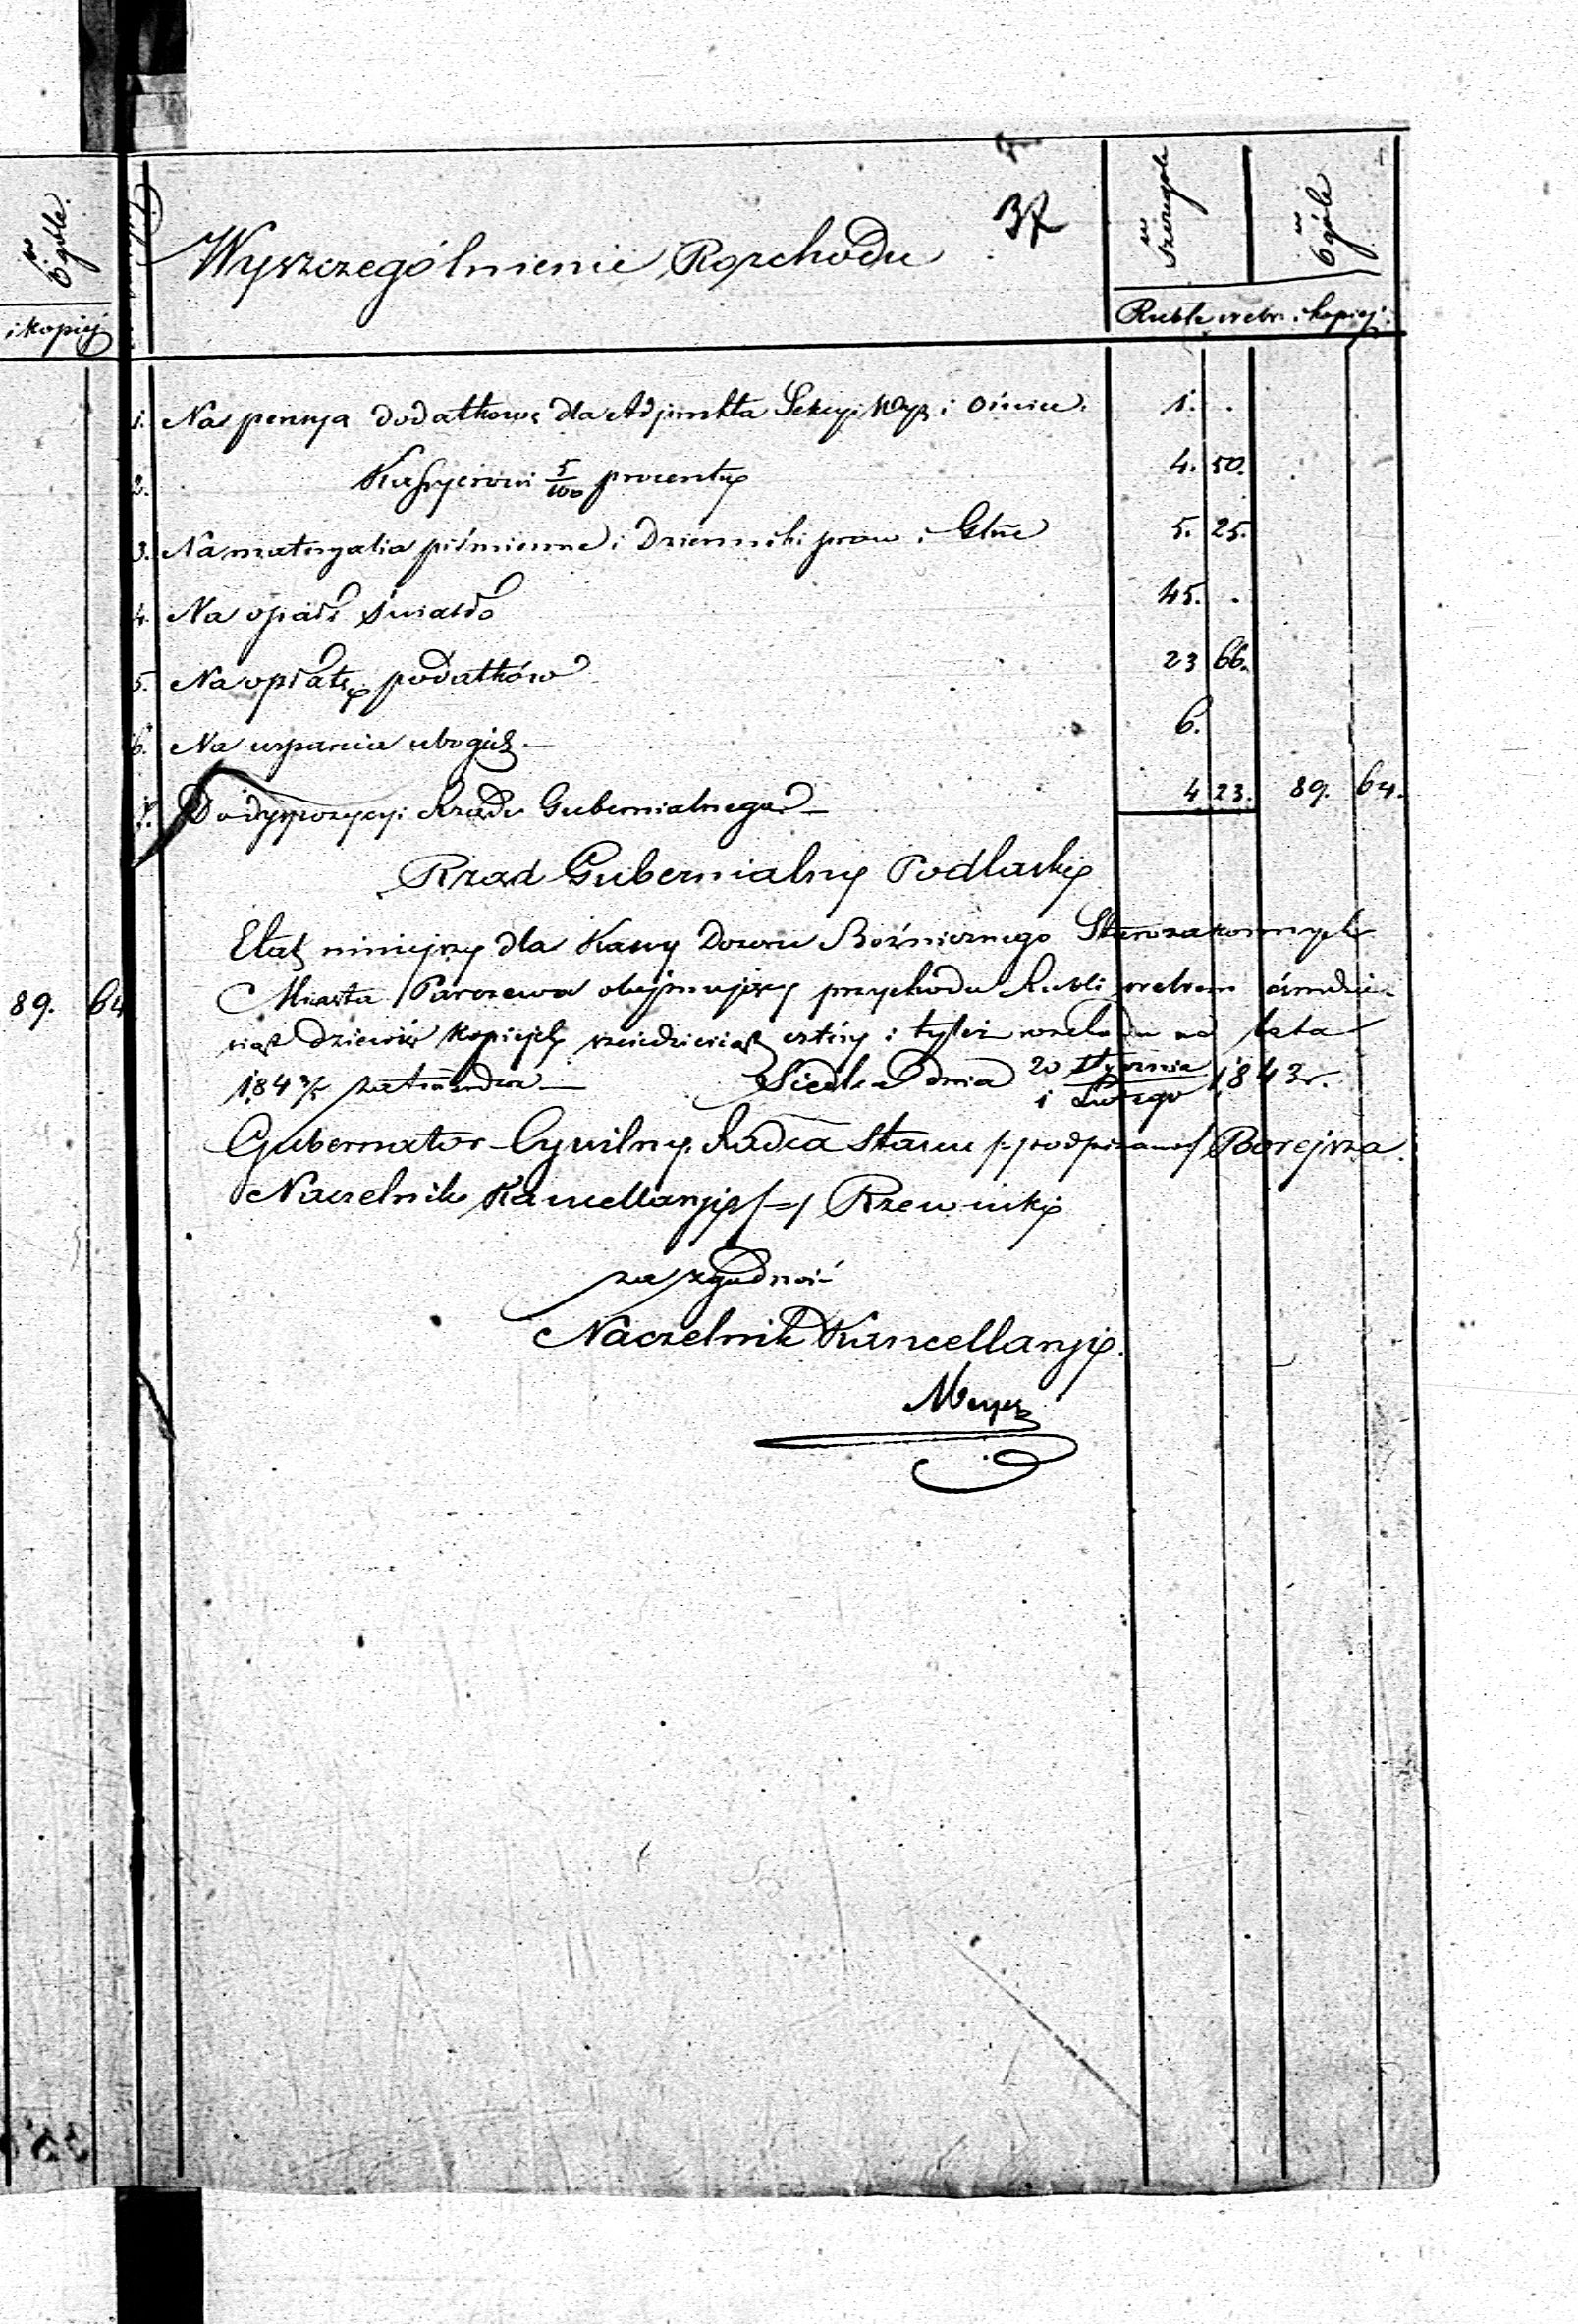 w Ogóle.
i kopiej
89. 64
37
Wyszczególnienie Rozchodu
w szczególe
w Ogóle
Ruble srebr. i kopiej.
1. Na pensyą dodatkową dla Adjunkta Sekcyi Wyz. i Oświec. 1. .
2. Kassyerowi 5/100 procentu 4. 50.
3. Na materyalia piśmienne i Dzienniki praw i Glne 5. 25.
4. Na opał i światło 45. .
5. Na opłatę podatków 23 66.
6. Na wsparcie ubogich.— 6.
7. Do dyspozycyi Rządu Gubernialnego— 4 23. 89. 64.
Rząd Gubernialny Podlaski
Etat niniejszy dla Kassy Dozoru Bożniczego Starozakonnych
Miasta Parczewa obejmujący przychodu Rubli srebrem ośmdzie-
siąt dziewięć kopiejek sześćdziesiąt cztéry i tyleż rozchodu na lata
184 3/5 zatwierdza— Siedlce dnia 20 Stycznia / 1 Lutego 1843 r.
Gubernator Cywilny Radca Stanu /-/ podpisano / Boreysza.
Naczelnik Kancellaryi /-/ Rzewuski
za zgodność
Naczelnik Kancellaryi.
Meyer